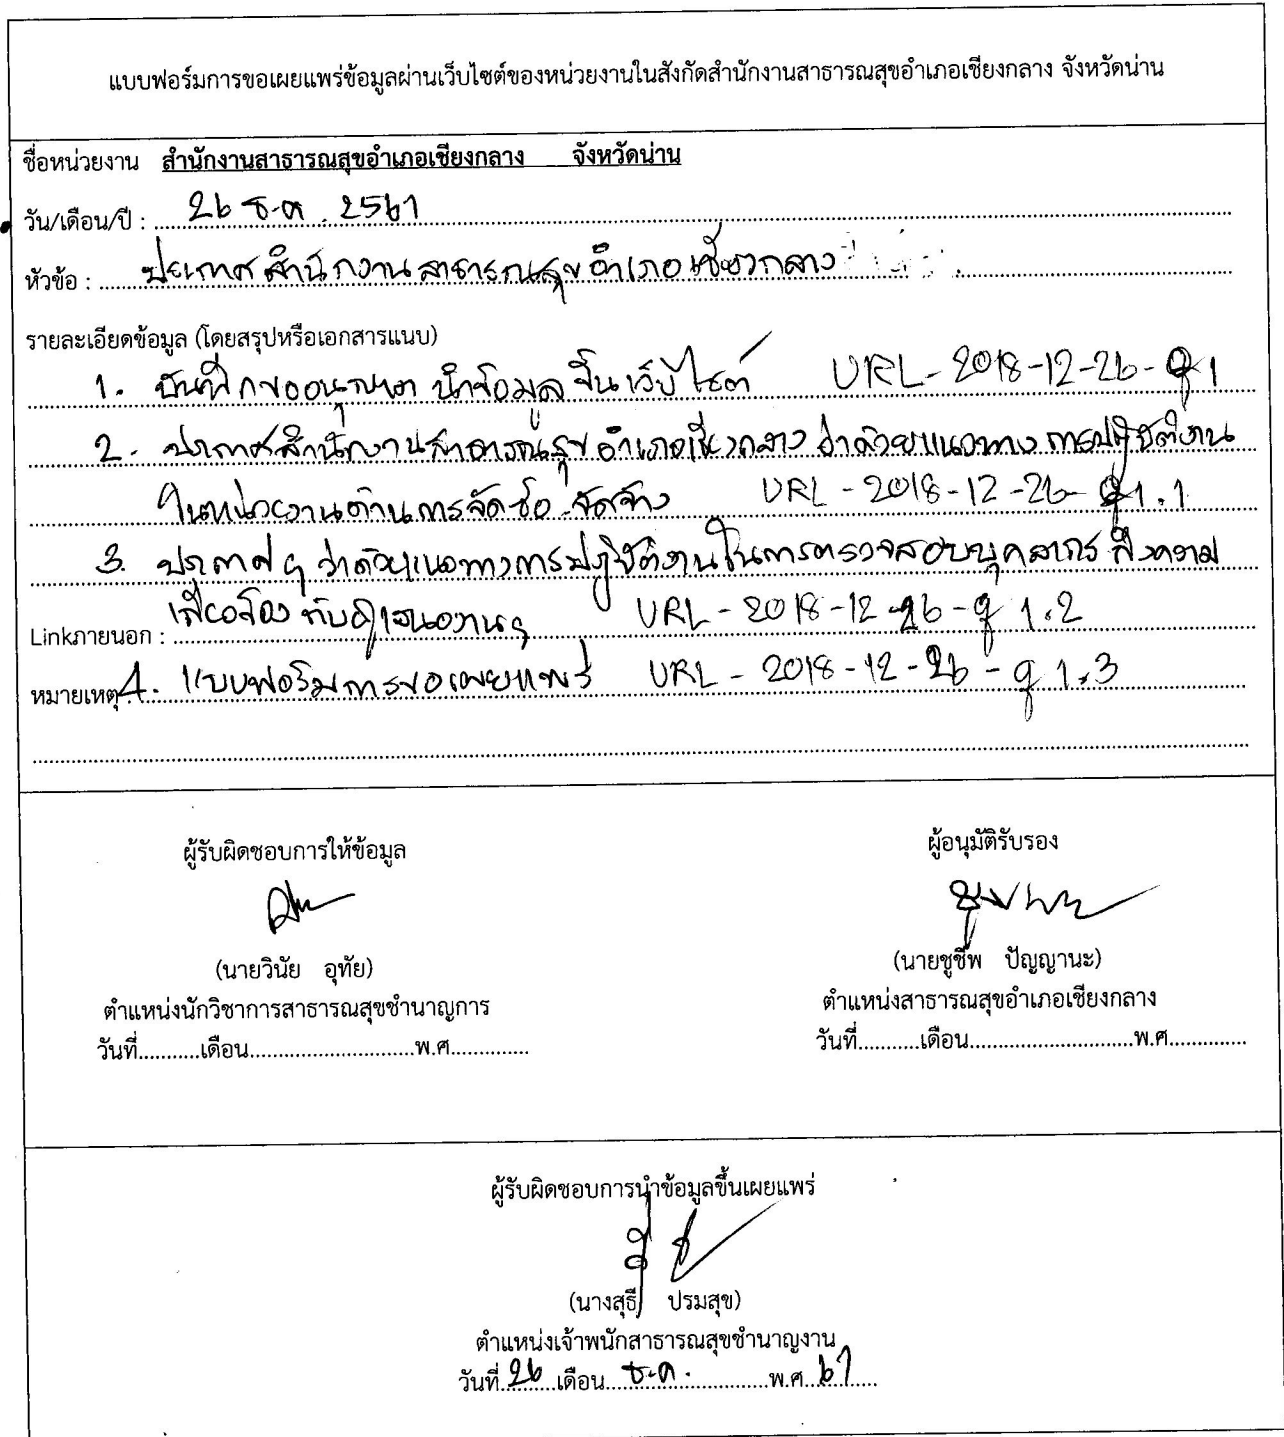 แบบฟอร์มการขอเผยแพร่ข้อมูลผ่านเว็บไซต์ของหน่วยงานในสังกัดสำนักงานสาธารณสุขอำเภอเชียงกลาง จังหวัดน่าน
ชื่อหน่วยงาน สำนักงานสาธารณสุขอำเภอเชียงกลาง จังหวัดน่าน
วัน/เดือน/ปี : 26 ธ.ค. 2561
หัวข้อ : ประกาศ สำนักงานสาธารณสุขอำเภอเชียงกลาง
รายละเอียดข้อมูล (โดยสรุปหรือเอกสารแนบ)
1. บันทึกขออนุญาต นำข้อมูลขึ้นเว็บไซต์ URL-2018-12-26-q1
2. ประกาศสำนักงานสาธารณสุขอำเภอเชียงกลาง ว่าด้วยแนวทางการปฏิบัติงาน
ในหน่วยงานด้านการจัดซื้อ-จัดจ้าง URL-2018-12-26-q1.1
3. ประกาศฯ ว่าด้วยแนวทางการปฏิบัติงานในการตรวจสอบบุคลากร ถึงความ
เกี่ยวข้องกับผู้เสนองานฯ URL-2018-12-26-q1.2
Linkภายนอก :
หมายเหตุ 4. แบบฟอร์มการขอเผยแพร่ URL-2018-12-26-q1.3
ผู้รับผิดชอบการให้ข้อมูล
(นายวินัย อุทัย)
ตำแหน่งนักวิชาการสาธารณสุขชำนาญการ
วันที่...........เดือน.............................พ.ศ..............
ผู้อนุมัติรับรอง
(นายชูชีพ ปัญญานะ)
ตำแหน่งสาธารณสุขอำเภอเชียงกลาง
วันที่...........เดือน.............................พ.ศ..............
ผู้รับผิดชอบการนำข้อมูลขึ้นเผยแพร่
(นางสุธี ปรมสุข)
ตำแหน่งเจ้าพนักสาธารณสุขชำนาญงาน
วันที่ 26 เดือน ธ.ค. พ.ศ. 61